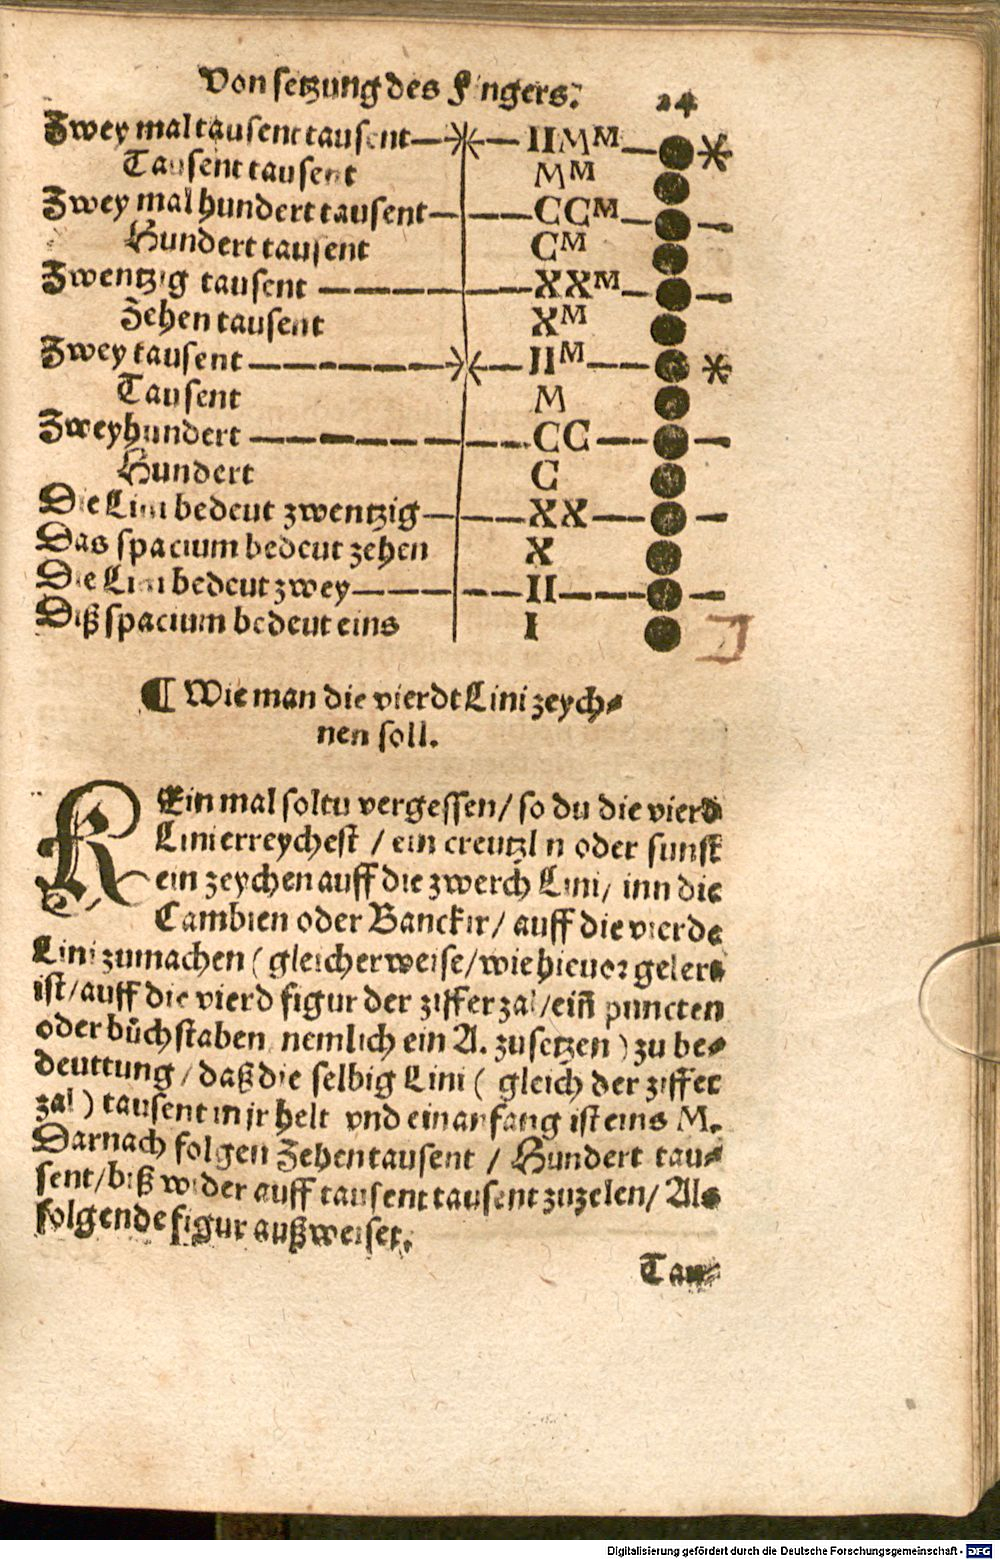 Von setzung des Fingers. 24
Zwey mal tausent tausent IIMM
Tausent tausent MM
Zwey mal hundert tausent CCM
Hundert tausent CM
Zwentzig tausent XXM
Zehen tausent XM
Zwey tausent IIM
Tausent M
Zweyhundert CC
Hundert C
Die Lini bedeut zwentzig XX
Das spacium bedeut zehen X
Die Lini bedeut zwey II
Diß spacium bedeut eins I
¶ Wie man die vierdt Lini zeych-
nen soll.
KEin mal soltu vergessen / so du die vierd
Lini erreychest / ein creutzl n oder sunst
ein zeychen auff die zwerch Lini / inn die
Cambien oder Banckir / auff die vierde
Lini zumachen ( gleicherweise / wie hievor gelert
ist / auff die vierd figur der zifferzal / eiñ puncten
oder bůchstaben nemlich ein A. zusetzen ) zu be-
deuttung / daß die selbig Lini ( gleich der ziffer
zal ) tausent in jr helt vnd ein anfang ist eins M.
Darnach folgen Zehentausent / Hundert tau-
sent / biß wider auff tausent tausent zuzelen / Als
folgende figur außweiset.
Tau-
Digitalisierung gefördert durch die Deutsche Forschungsgemeinschaft - DFG